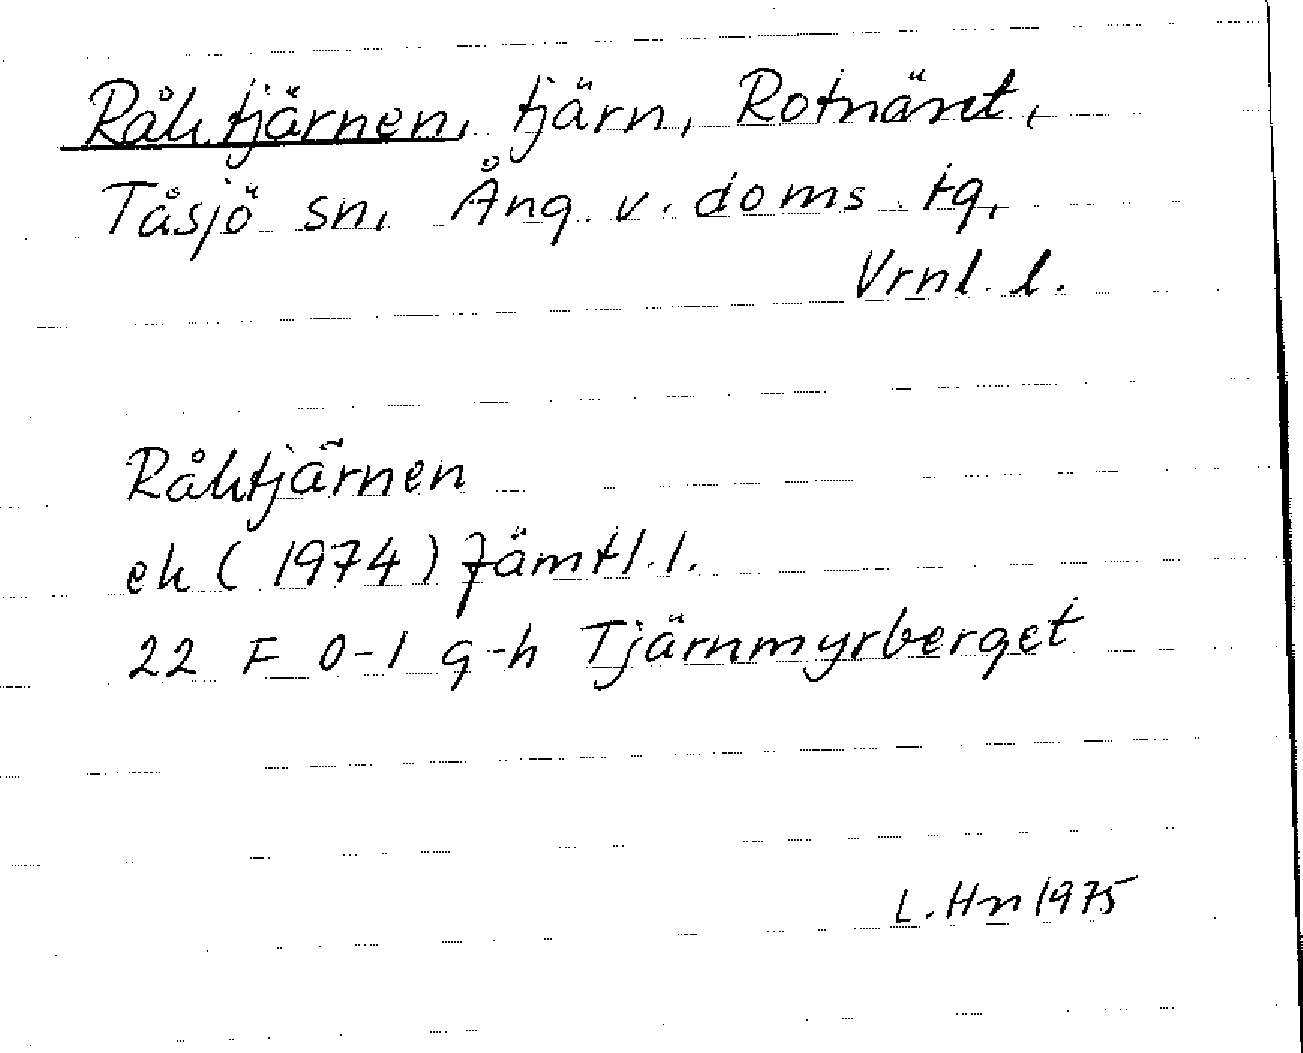 Råktjärnen, tjärn, Rotnäset,
Tåsjö sn, Ång. v. doms. tg,
Vrnl. l.
Råktjärnen
ek (1974) Jämtl. l.
22 F 0-1 g-h Tjärnmyrberget
L. Hn 1975